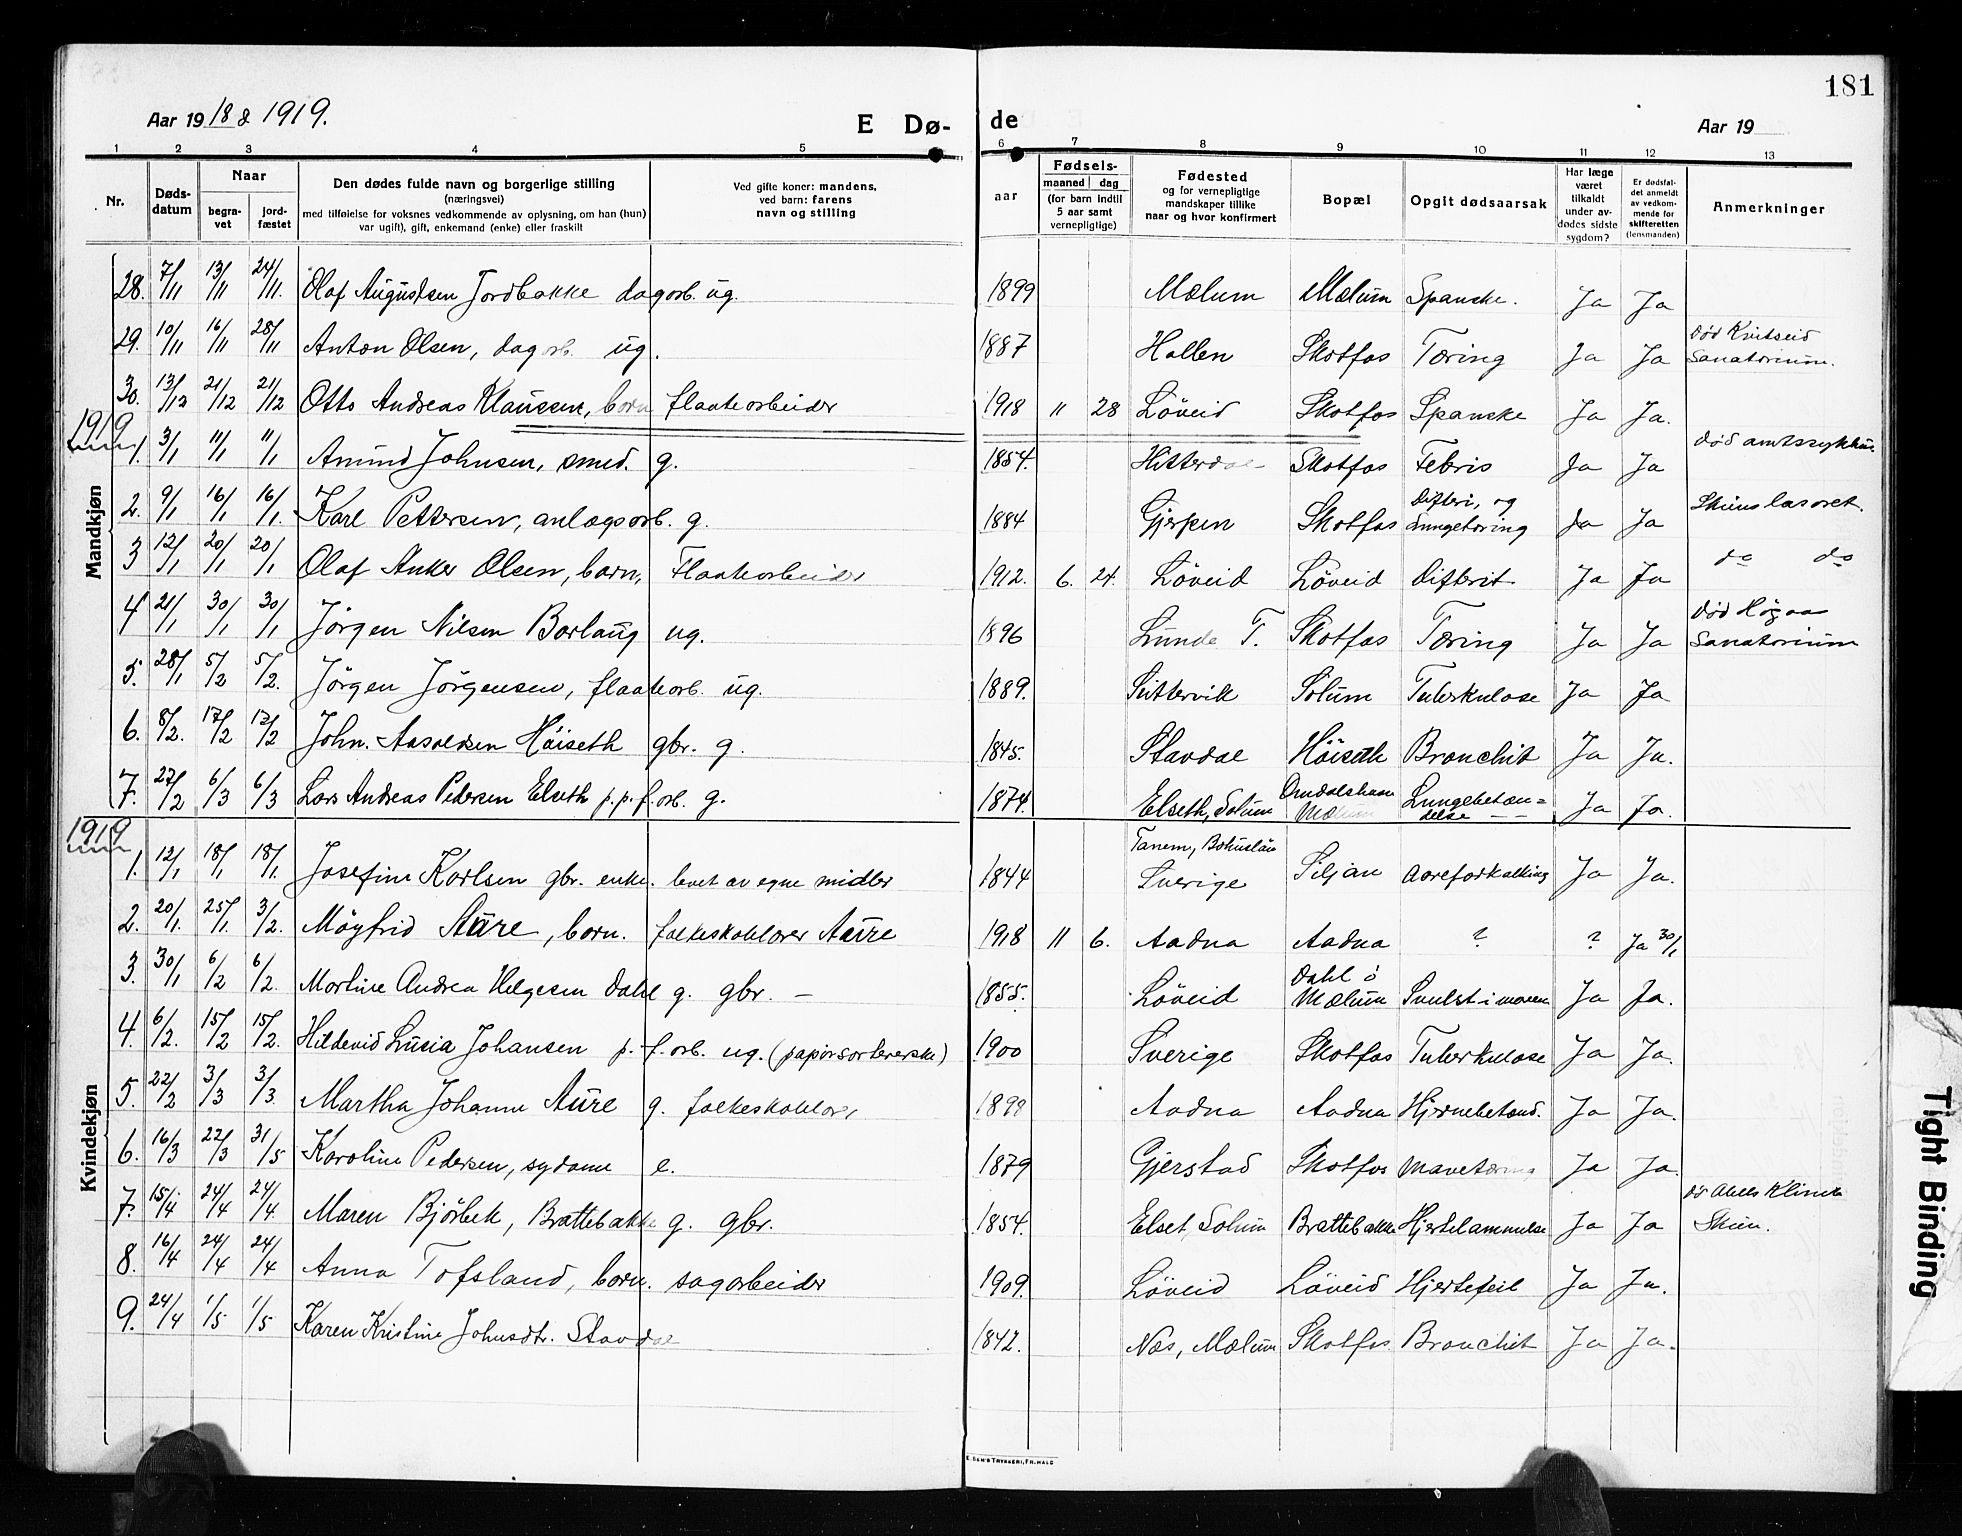 181
Aar 19 18 & 1919.
E Dø-
de
Aar 19
1 2 3 4 5 6 7 8 9 10 11 12 13
Nr.
Døds-
datum
Naar
begra-
vet
jord-
fæstet
Den dødes fulde navn og borgerlige stilling
(næringsvei)
med tilføielse for voksnes vedkommende av oplysning, om han (hun)
var ugift), gift, enkemand (enke) eller fraskilt
Ved gifte koner: mandens,
ved barn: farens
navn og stilling
aar
Fødsels-
maaned dag
(for barn indtil
5 aar samt
vernepligtige)
Fødested
og for vernepligtige
mandskaper tillike
naar og hvor konfirmert
Bopæl
Opgit dødsaarsak
Har læge
været
tilkaldt
under av-
dødes sidste
sygdom?
Er dødsfal-
det anmeldt
av vedkom-
mende for
skifteretten
(lensmanden)
Anmerkninger
Mandkjøn
28. 7/11 13/11 24/11. Olaf Augustsen Jordbakke dagarb. ug. 1899 Mælum Mælum Spanske. Ja Ja
29. 10/11 16/11 28/11 Anton Olsen, dagarb. ug. 1887 Hollen Skotfos Tæring Ja Ja død Kvitseid Sanatorium.
30. 13/12 21/12 21/12 Otto Andreas Klaussen, barn flaatearbeider 1918 11 28 Löveid Skotfos Spanske Ja Ja.
1919
1. 3/1 11/1 11/1 Amund Johnsen, smed. g. 1854. Hitterdal Skotfos Febris Ja Ja død amtssykhus.
2. 9/1 16/1 16/1. Karl Pettersen, anlægsarb. g. 1884 Gjerpen Skotfos Difteri, og Lungetæring Ja Ja Skiens lasaret.
3 12/1 20/1 20/1 Olaf Anker Olsen, barn, Flaatearbeider 1912. 6. 24. Löveid Löveid Difterit Ja Ja do do
4 21/1 30/1 30/1 Jörgen Nilsen Borlaug ug. 1896 Lunde T. Skotfos Tæring Ja Ja død Högaa Sanatorium
5. 28/1 5/2 5/2. Jörgen Jörgensen, flaatearb. ug. 1889. Solum Tuberkulose Ja Ja
6. 8/2. 17/2 17/2 John. Aasoldsen Höiseth gbr. g. 1845. Stavdal Höiseth Bronchit Ja Ja.
7. 27/2 6/3 6/3 Lars Andreas Pedersen Elseth p.p.f.arb. g. 1874. Elseth, Solum Mælum Lungebetæn=delse Ja Ja.
1919
Kvindekjøn
1. 12/1 18/1 18/1. Josefine Karlsen gbr. enke. levet av egne midler 1844 Tanem, Bohuslän Sverige Siljan Aareforkalkning Ja Ja.
2. 20/1. 25/1. 3/2. Möyfrid Aure, barn. folkeskolelærer Aure 1918 11 6. Aadna Aadna ? ? Ja 30/1
3. 30/1 6/2 6/2. Martine Andrea Helgesen Dahl g. gbr. – 1855. Löveid Dahl i Mælum Svulst i maven Ja Ja.
4. 6/2. 15/2 15/2. Hildevid Lusia Johansen p.f.arb. ug. (papirsortererske) 1900 Sverige Skotfos Tuberkulose Ja Ja.
5. 22/2 3/3 3/3. Martha Johanne Aure g. folkeskolelærer 1899 Aadna Aadna Hjernebetænd. Ja Ja.
6. 16/3 22/3 31/5 Karoline Pedersen, sydame e. 1879 Gjerstad Skotfos Mavetæring Ja Ja.
7. 15/4 24/4 24/4. Maren Björbek, Brattebakke g. gbr. 1854. Elset, Solum Brattebakke Hjertelammelse Ja Ja Klinik Skien.
8. 16/4 24/4 24/4 Anna Tofsland, barn. sagarbeider 1909. Löveid Löveid Hjertefeil Ja Ja.
9. 24/4 1/5 1/5 Karen Kristine Johnsdtr. Stavdal 1842. Næs, Mælum Skotfos Bronchit Ja Ja.
Tight Binding